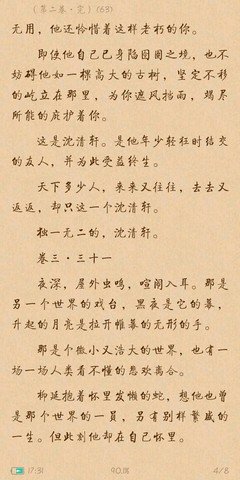 (第二卷·完) (53)
无用，他还怜惜着这样老朽的你。
即使他自己已身陷囹圄之境，也不
妨碍他如一棵高大的古树，坚定不移
的屹立在那里，为你遮风挡雨，竭尽
所能的庇护着你。
这是沈清轩。是他年少轻狂时结交
的友人，并为此受益终生。
天下多少人，来来又往往，去去又
返返，却只这一个沈清轩。
独一无二的，沈清轩。
卷三·三十一
夜深，屋外虫鸣，喧闹入耳。那是
另一个世界的戏台，黑夜是它的幕，
升起的月亮是拉开帷幕的无形的手。
那是个微小又浩大的世界，也有一
场一场人类看不懂的悲欢离合。
柳延抱着怀里发懒的蛇，想他也曾
是那个世界的一員，另有别样繁盛的
一生。但此刻他却在自己怀里。
17:31
90.席
4/8